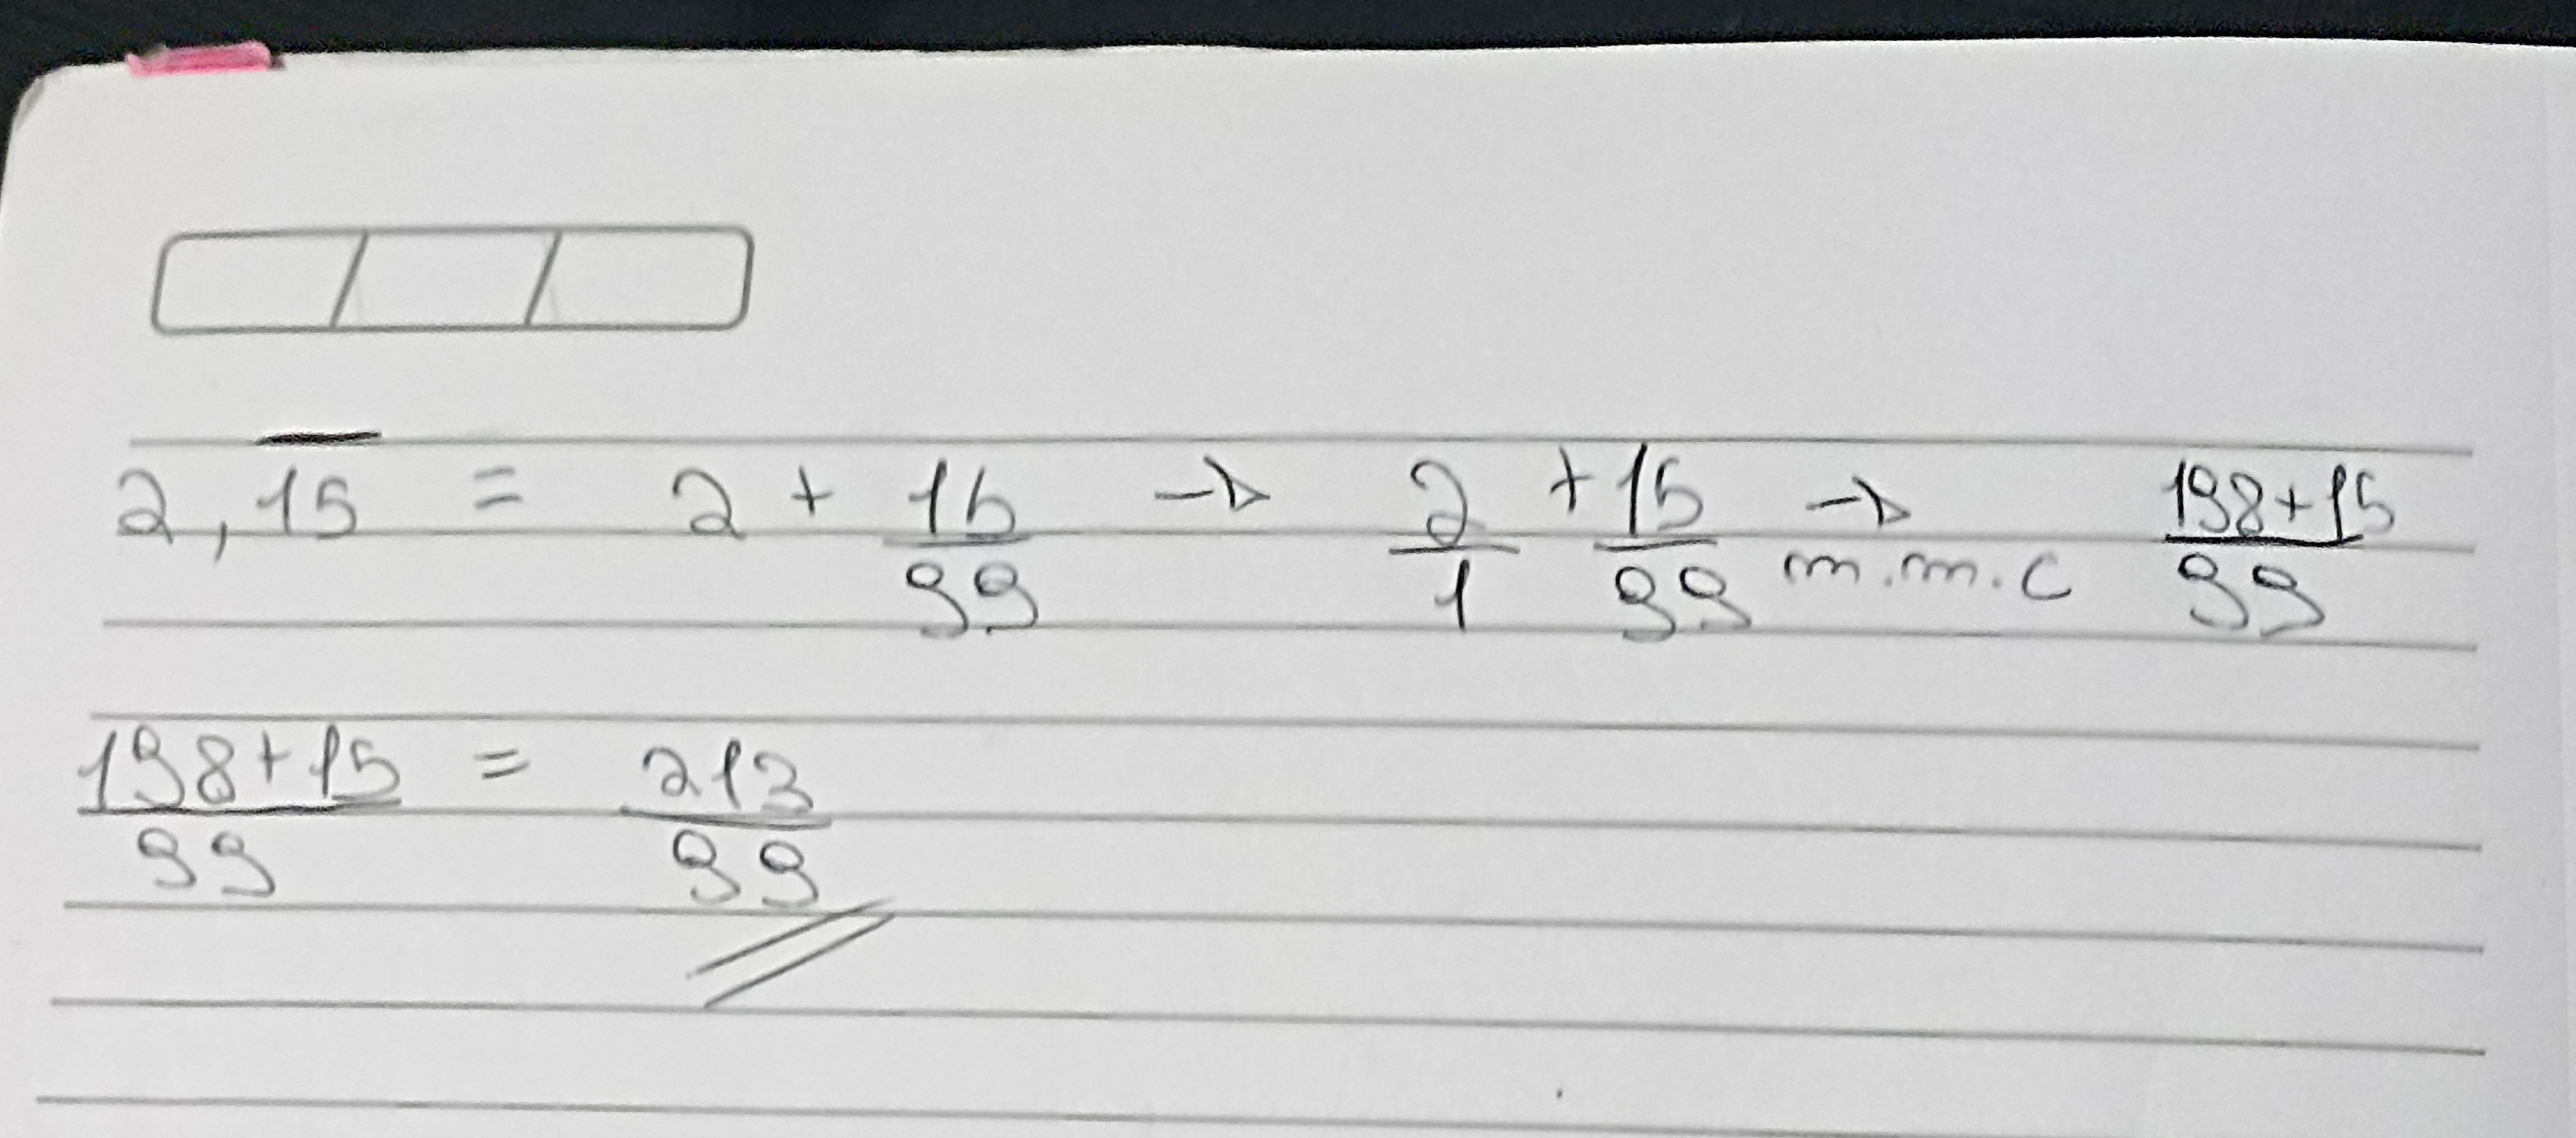 2,1̅5̅ = 2 + 15/99 → 2/1 + 15/99 → m.m.c 198+15/99
198+15/99 = 213/99